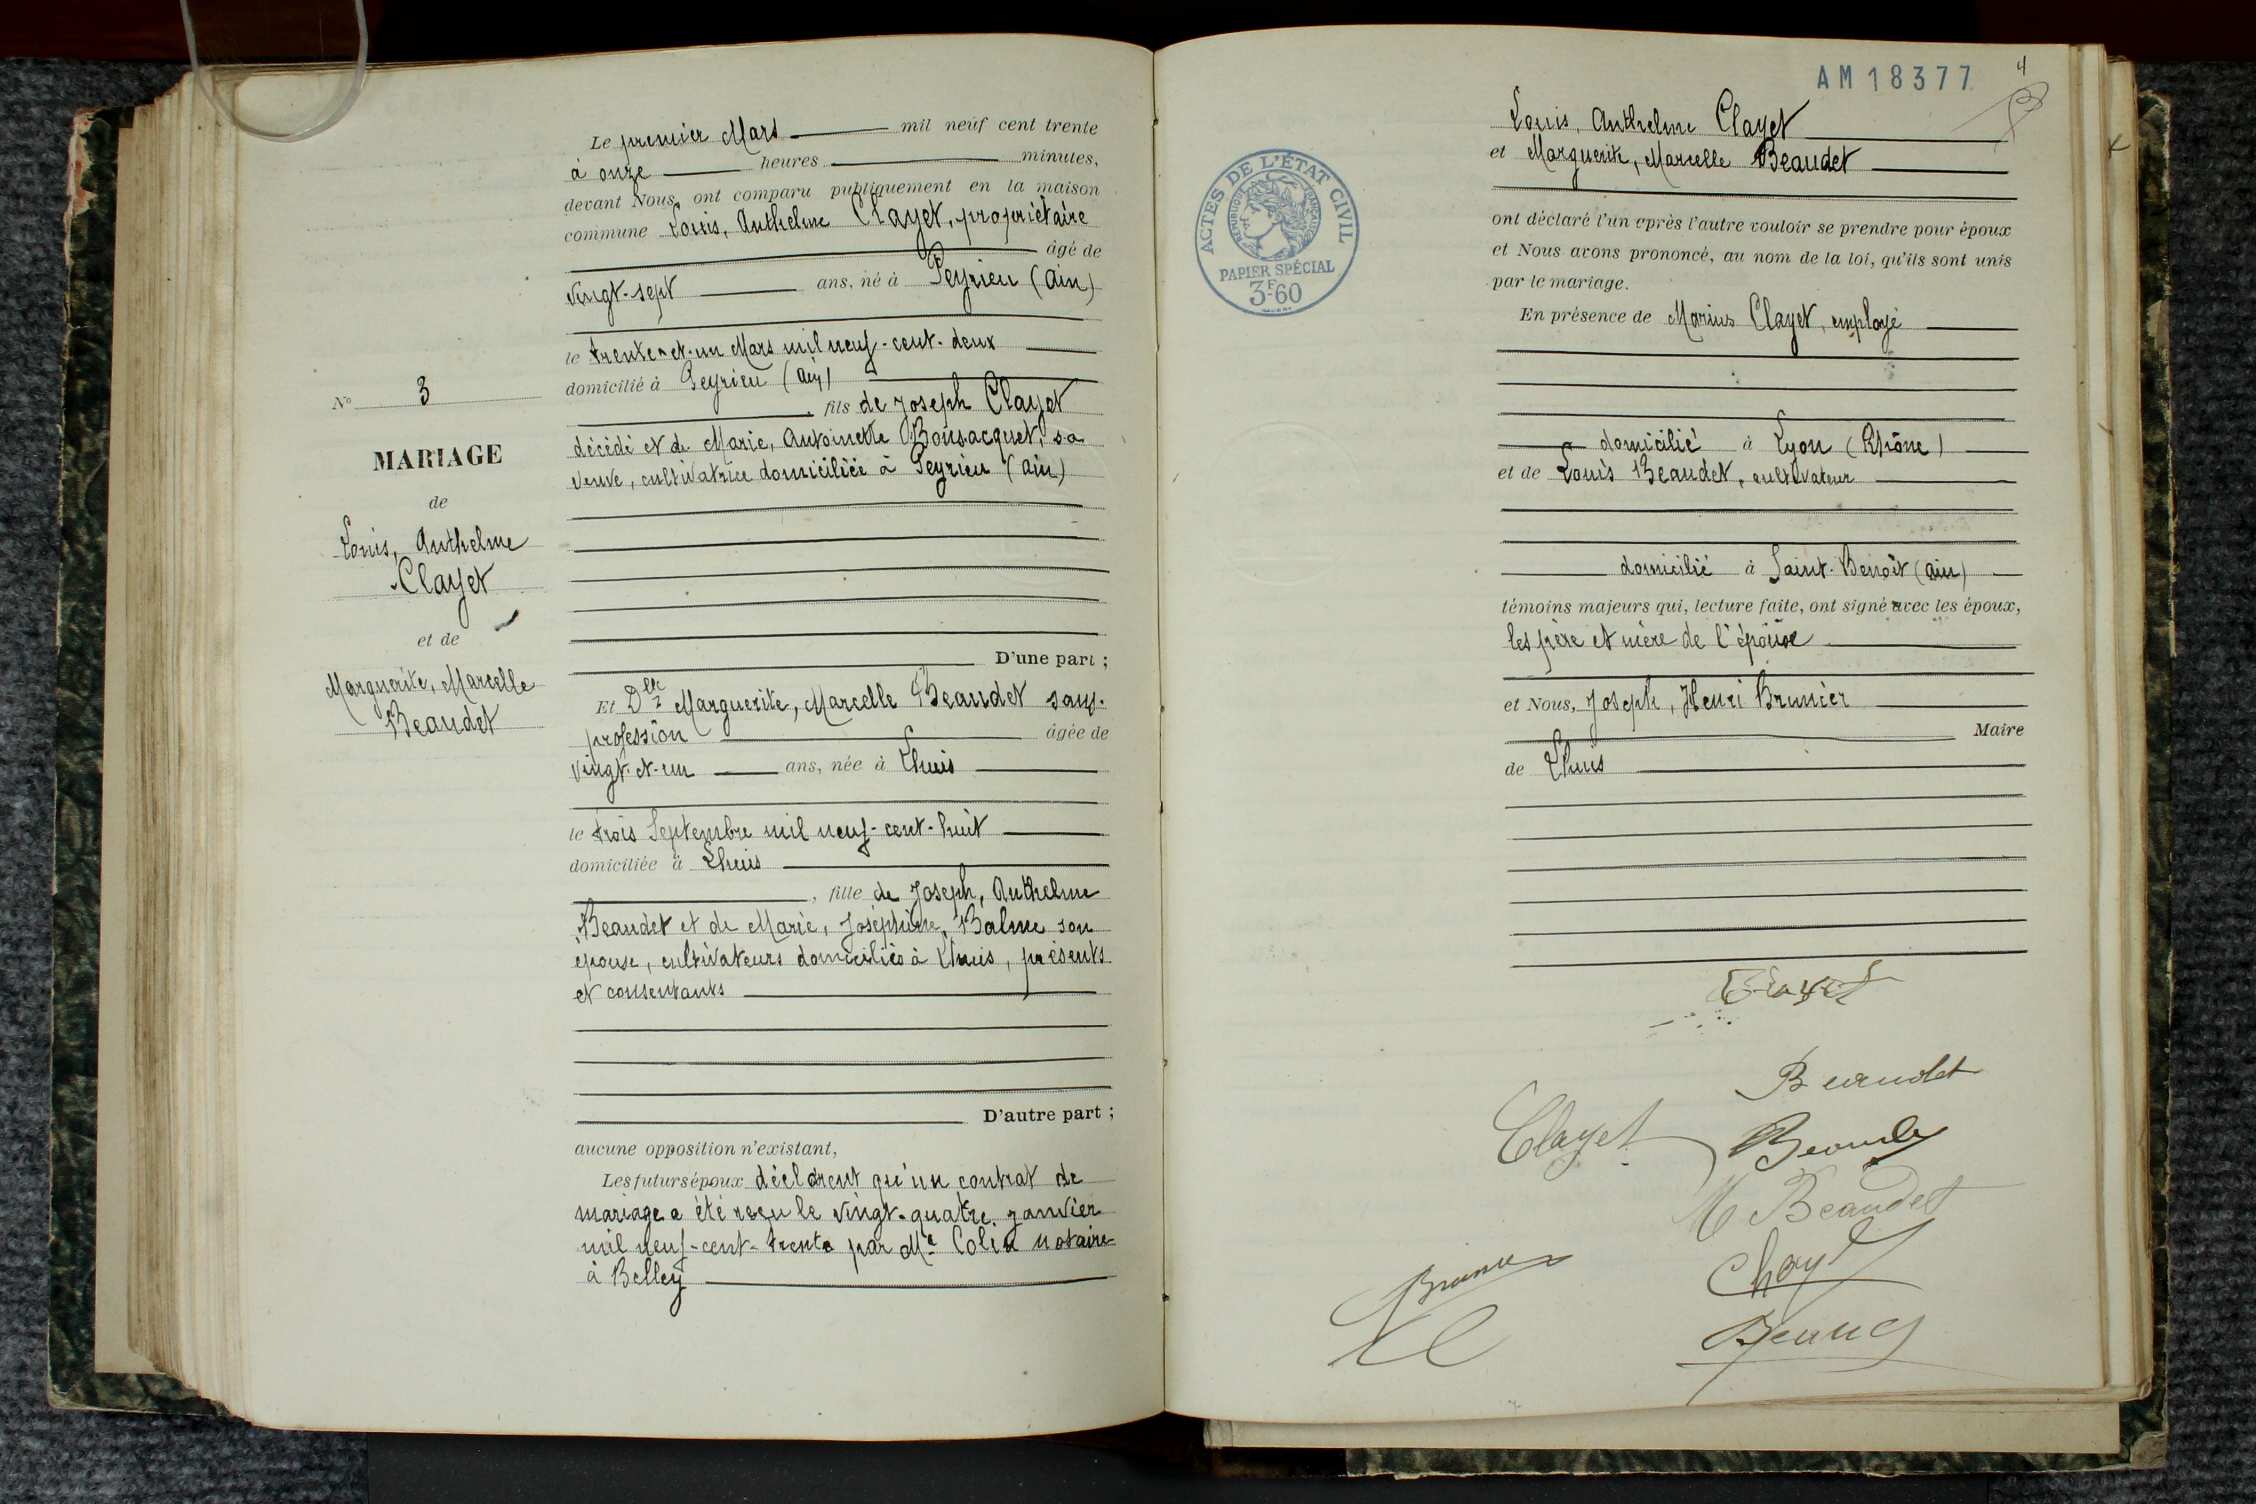 Nº 3
MARIAGE
de
Louis, Anthelme
Clayet
et de
Marguerite, Marcelle
Beaudet
Le premier Mars mil neuf cent trente
à onze heures minutes,
devant Nous, ont comparu publiquement en la maison
commune Louis, Anthelme Clayet, propriétaire
âgé de
vingt-sept ans, né à Peyrieu (Ain)
le trente-et-un Mars mil neuf-cent-deux
domicilié à Peyrieu (Ain)
, fils de Joseph Clayet
décédé et de Marie, Antoinette Bousacquet, sa
veuve, cultivatrice domiciliée à Peyrieu (Ain)
D'une part ;
Et Dlle Marguerite, Marcelle Beaudet sans-
profession âgée de
vingt-et-un ans, née à Lhuis
le trois Septembre mil neuf-cent-huit
domiciliée à Lhuis
, fille de Joseph, Anthelme
Beaudet et de Marie, Joséphine, Balme son
épouse, cultivateurs domiciliés à Lhuis, présents
et consentants
D'autre part ;
aucune opposition n'existant,
Les futurs époux déclarent qu'un contrat de
mariage a été reçu le vingt-quatre janvier
mil neuf-cent-trente par Me Colin notaire
à Belley
AM 18377
4
ACTES DE L'ÉTAT CIVIL
RÉPUBLIQUE FRANÇAISE
PAPIER SPÉCIAL
3F-60
Louis, Anthelme Clayet
et Marguerite, Marcelle Beaudet
ont déclaré l'un après l'autre vouloir se prendre pour époux
et Nous avons prononcé, au nom de la loi, qu'ils sont unis
par le mariage.
En présence de Marius Clayet, employé
domicilié à Lyon (Rhône)
et de Louis Beaudet, cultivateur
domicilié à Saint-Benoît (Ain)
témoins majeurs qui, lecture faite, ont signé avec les époux,
les père et mère de l'épouse
et Nous, Joseph, Henri Brunier
Maire
de Lhuis
Clayet
Beaudet
Clayet
M Beaudet